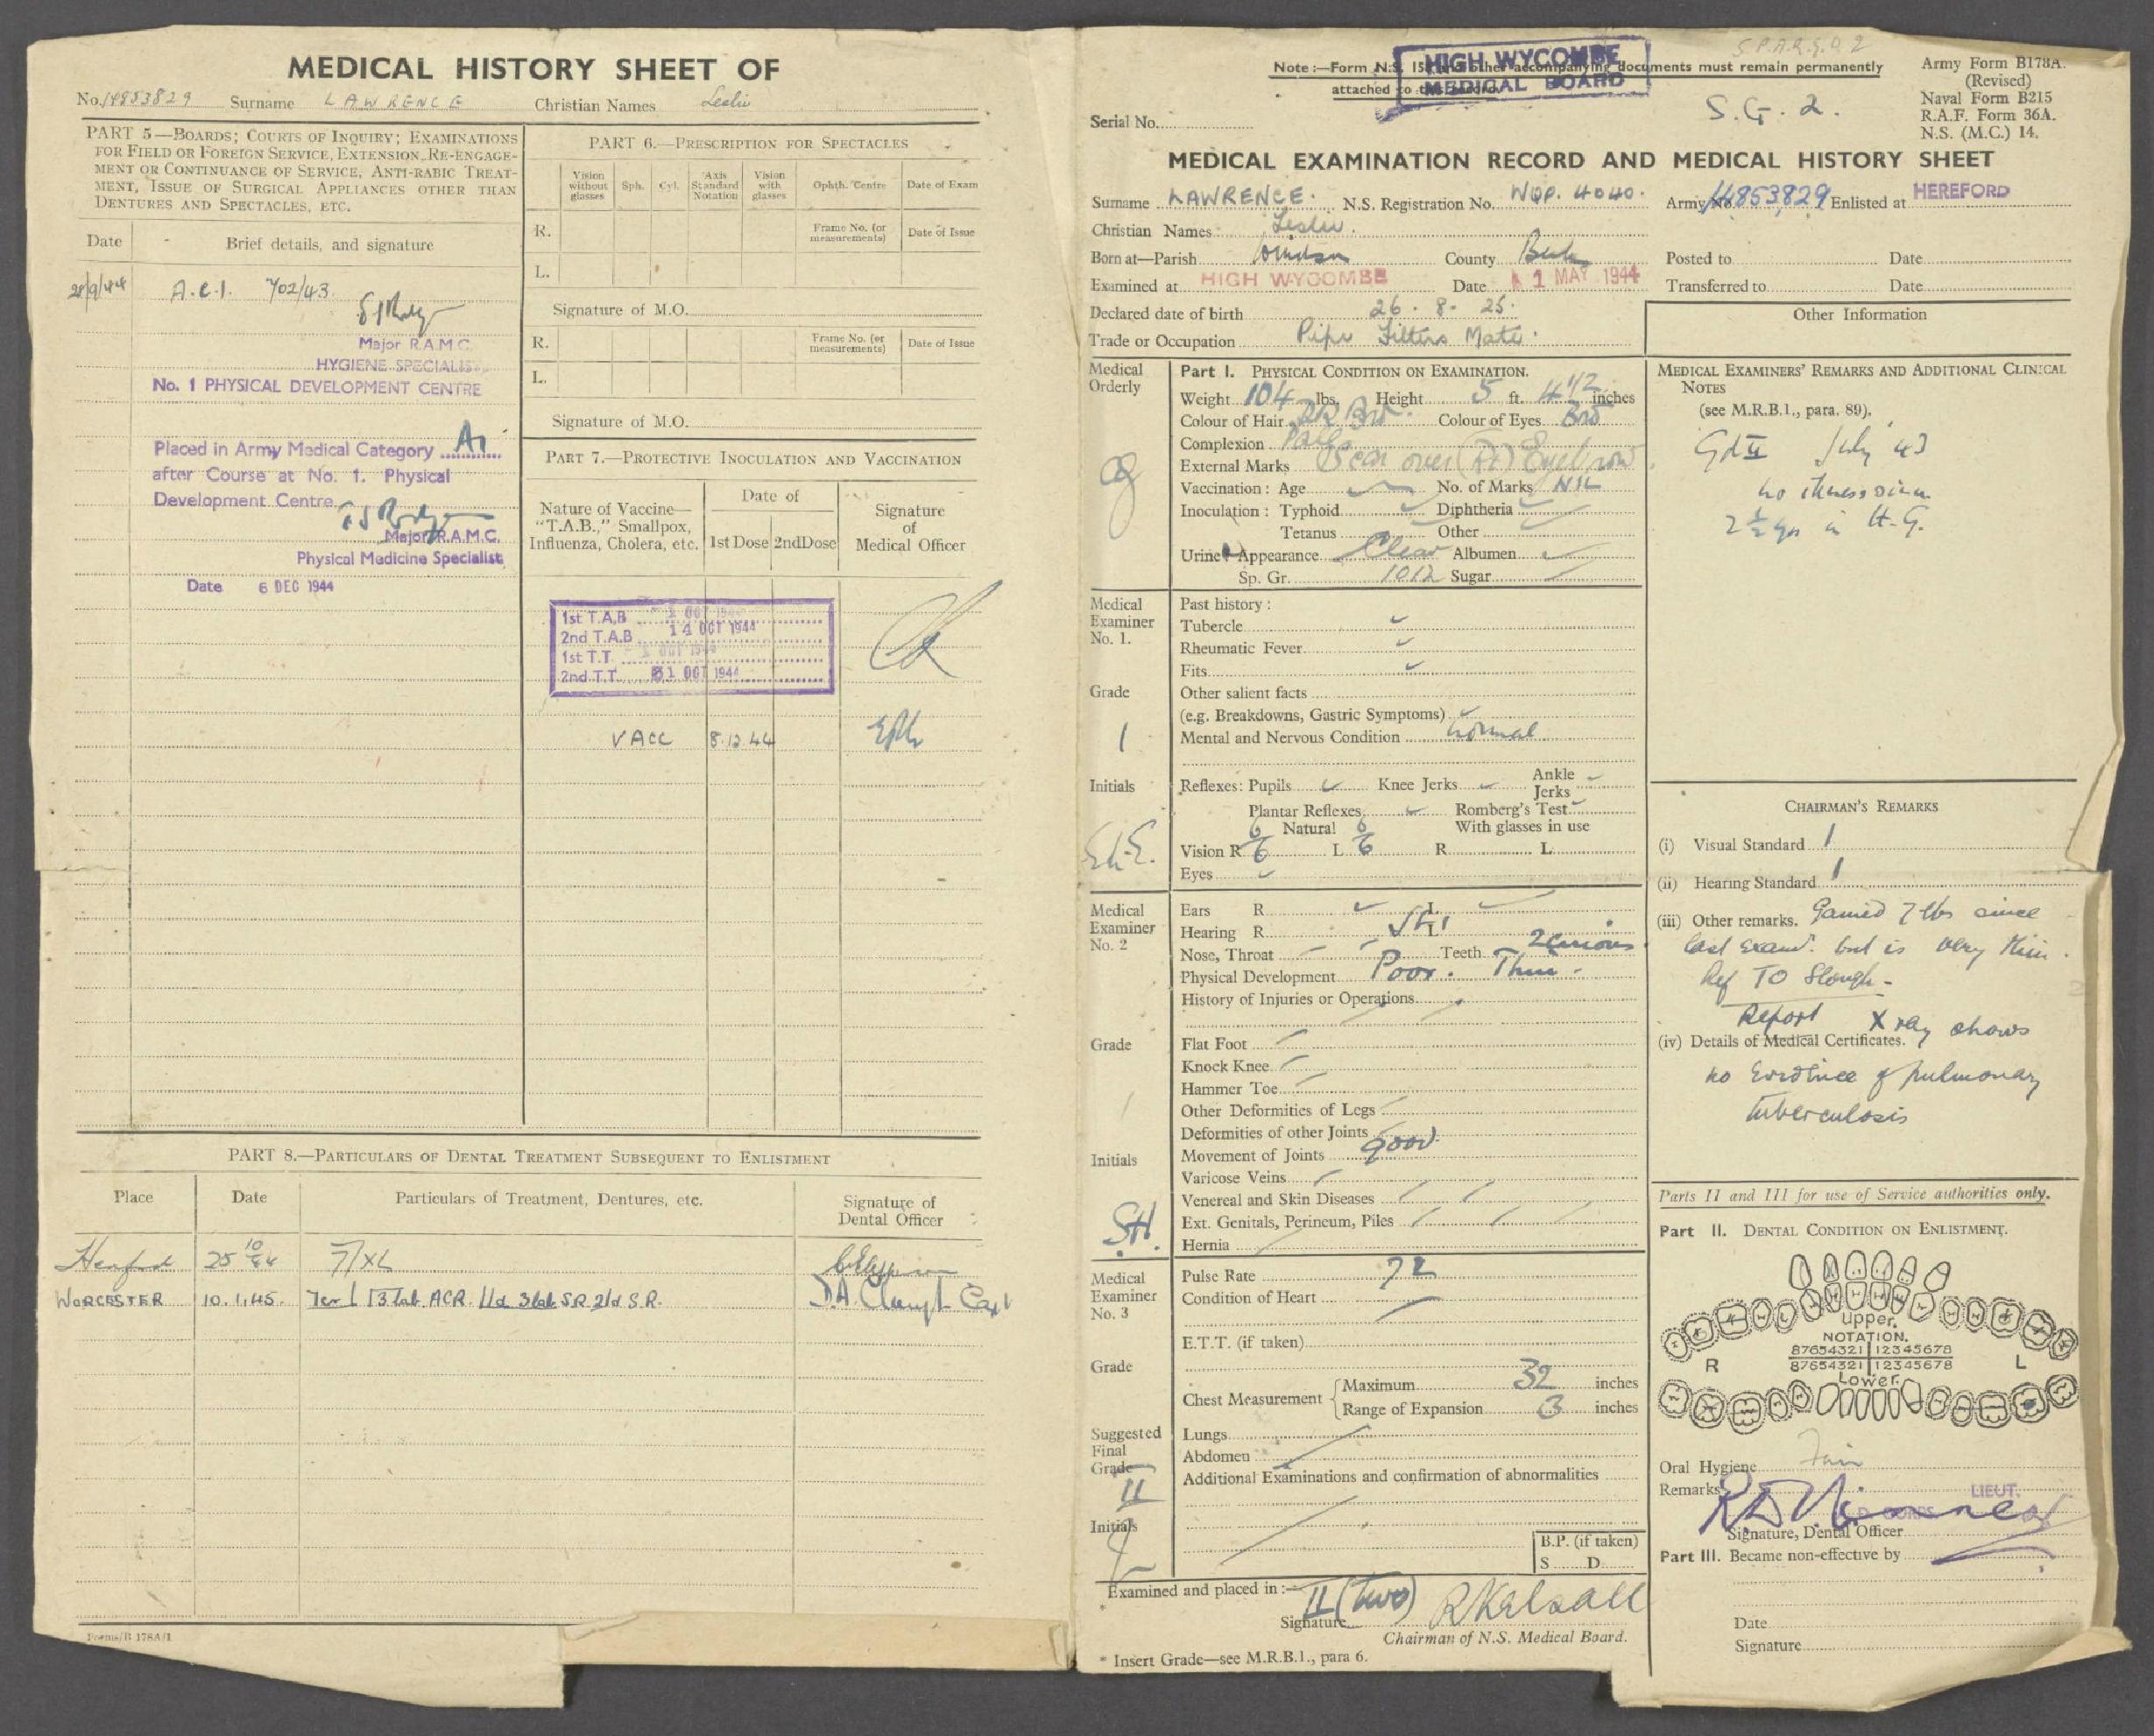 MEDICAL HISTORY SHEET OF
No. 14853829 Surname LAWRENCE Christian Names Leslie
PART 5—BOARDS; COURTS OF INQUIRY; EXAMINATIONS
FOR FIELD OR FOREIGN SERVICE, EXTENSION, RE-ENGAGE-
MENT OR CONTINUANCE OF SERVICE, ANTI-RABIC TREAT-
MENT, ISSUE OF SURGICAL APPLIANCES OTHER THAN
DENTURES AND SPECTACLES, ETC.
Date Brief details, and signature
28/9/44 A.C.I. 702/43.
Major R.A.M.C.
HYGIENE SPECIALIST
No. 1 PHYSICAL DEVELOPMENT CENTRE
Placed in Army Medical Category A1
after Course at No. 1. Physical
Development Centre.
Major R.A.M.C.
Physical Medicine Specialist
Date 6 DEC 1944
PART 6.—PRESCRIPTION FOR SPECTACLES
Vision without glasses Sph. Cyl. Axis Standard Notation Vision with glasses Ophth. Centre Date of Exam
R. Frame No. (or measurements) Date of Issue
L.
Signature of M.O.
R. Frame No. (or measurements) Date of Issue
L.
Signature of M.O.
PART 7.—PROTECTIVE INOCULATION AND VACCINATION
Nature of Vaccine— "T.A.B.," Smallpox, Influenza, Cholera, etc.
Date of
1st Dose 2nd Dose
Signature of Medical Officer
1st T.A.B OCT 1944
2nd T.A.B 14 OCT 1944
1st T.T. OCT 1944
2nd T.T. 31 OCT 1944
VACC 8.12.44
PART 8.—PARTICULARS OF DENTAL TREATMENT SUBSEQUENT TO ENLISTMENT
Place Date Particulars of Treatment, Dentures, etc. Signature of Dental Officer
Hereford 25 10/44
WORCESTER 10.1.45.
Forms/B 178A/1
Note:—Form N.S. 15 and other accompanying documents must remain permanently
attached to this record.
HIGH WYCOMBE
MEDICAL BOARD
S.G. 2.
Army Form B178A.
(Revised)
Naval Form B215
R.A.F. Form 36A.
N.S. (M.C.) 14.
Serial No.
MEDICAL EXAMINATION RECORD AND MEDICAL HISTORY SHEET
Surname LAWRENCE. N.S. Registration No. WQP. 4040. Army No. 14853829 Enlisted at HEREFORD
Christian Names Leslie.
Born at—Parish Windsor County Berks Posted to Date
Examined at HIGH WYCOMBE Date 1 MAY 1944 Transferred to Date
Declared date of birth 26. 8. 25.
Trade or Occupation Pipe Fitters Mate.
Other Information
Medical Orderly
Part I. PHYSICAL CONDITION ON EXAMINATION.
Weight 104 lbs. Height 5 ft. 4 1/2 inches
Colour of Hair DK Bro. Colour of Eyes Bro
Complexion Pale
External Marks Scar over (Rt) Eyebrow.
Vaccination: Age No. of Marks NIL
Inoculation: Typhoid Diphtheria
Tetanus Other
Urine: Appearance Clear Albumen
Sp. Gr. 1012 Sugar
MEDICAL EXAMINERS' REMARKS AND ADDITIONAL CLINICAL NOTES
(see M.R.B.1., para. 89).
Gd II July 43
no illness since
2 1/2 yrs in H.G.
Medical Examiner No. 1.
Past history:
Tubercle
Rheumatic Fever
Fits
Grade 1
Other salient facts
(e.g. Breakdowns, Gastric Symptoms)
Mental and Nervous Condition normal
Initials
Reflexes: Pupils Knee Jerks Ankle Jerks
Plantar Reflexes Romberg's Test
Natural With glasses in use
Vision R 6/6 L 6/6 R L
Eyes
Medical Examiner No. 2
Ears R L
Hearing R L
Nose, Throat Teeth
Physical Development Poor. Thin.
History of Injuries or Operations
Grade
Flat Foot
Knock Knee
Hammer Toe
Other Deformities of Legs
Deformities of other Joints
Movement of Joints good
Initials S.H.
Varicose Veins
Venereal and Skin Diseases
Ext. Genitals, Perineum, Piles
Hernia
Medical Examiner No. 3
Pulse Rate 72
Condition of Heart
E.T.T. (if taken)
Grade
Chest Measurement Maximum 32 inches
Range of Expansion 3 inches
Suggested Final Grade II
Lungs
Abdomen
Additional Examinations and confirmation of abnormalities
Initials
B.P. (if taken)
S D
Examined and placed in:— II (two)
Signature R Kelsall
Chairman of N.S. Medical Board.
* Insert Grade—see M.R.B.1., para 6.
CHAIRMAN'S REMARKS
(i) Visual Standard 1
(ii) Hearing Standard 1
(iii) Other remarks. Gained 7 lbs since
last exam. but is very thin.
Ref TO Slough.
Report X ray shows
(iv) Details of Medical Certificates.
no Evidence of pulmonary
tuberculosis
Parts II and III for use of Service authorities only.
Part II. DENTAL CONDITION ON ENLISTMENT.
Upper.
NOTATION.
R 87654321 12345678 L
87654321 12345678
Lower.
Oral Hygiene Fair
Remarks
LIEUT.
Signature, Dental Officer
Part III. Became non-effective by
Date
Signature